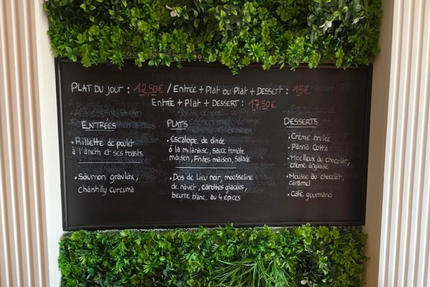 PLAT DU JOUR : 12,50€ / ENTRÉE + PLAT OU PLAT + DESSERT : 15€
ENTRÉE + PLAT + DESSERT : 17,50€
ENTRÉES
• Rillette de poulet
à l'aneth et ses toasts
• Saumon gravlax,
chantilly curcuma
PLATS
• Escalope de dinde
à la milanaise, sauce tomate
maison, Frites maison, Salade
• Dos de Lieu noir, mousseline
de navet, carottes glacées,
beurre blanc au 4 épices
DESSERTS
• Crème brûlée
• Panna Cotta
• Moelleux au chocolat,
crème anglaise
• Mousse au chocolat,
caramel
• Café gourmand